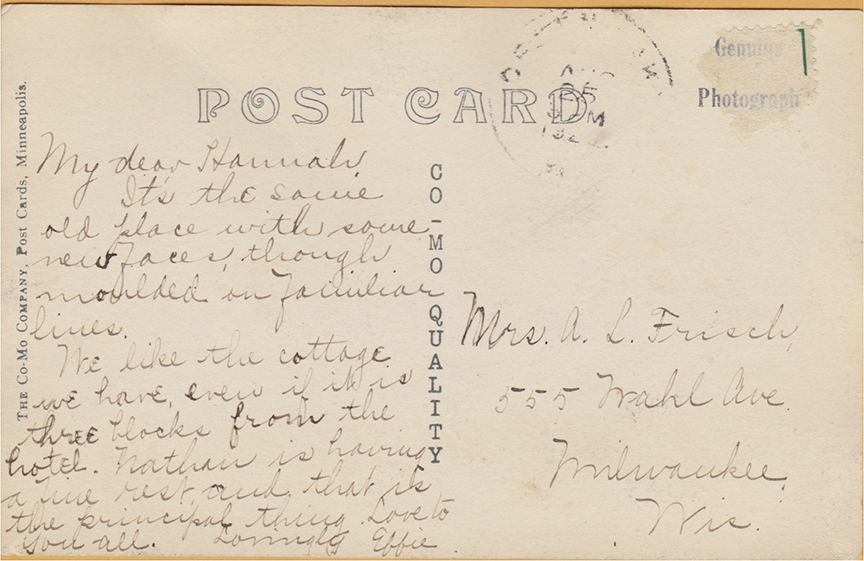 Genuine
Photograph
POST CARD
THE CO-MO COMPANY, Post Cards, Minneapolis.
CO-MO QUALITY
My dear Hannah,
It's the same
old place with some
new faces, though
moulded on familiar
lines.
We like the cottage
we have, even if it is
three blocks from the
hotel. Nathan is having
a fine rest and that is
the principal thing. Love to
you all. Lovingly Effie
Mrs. A. L. Frisch,
555 Wahl Ave.
Milwaukee,
Wis.